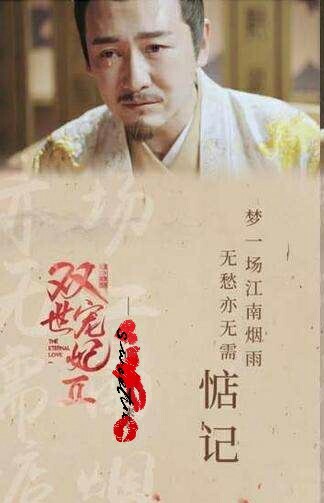 梦一场江南烟雨
无愁亦无需
惦记
双世宠妃Ⅱ
THE ETERNAL LOVE